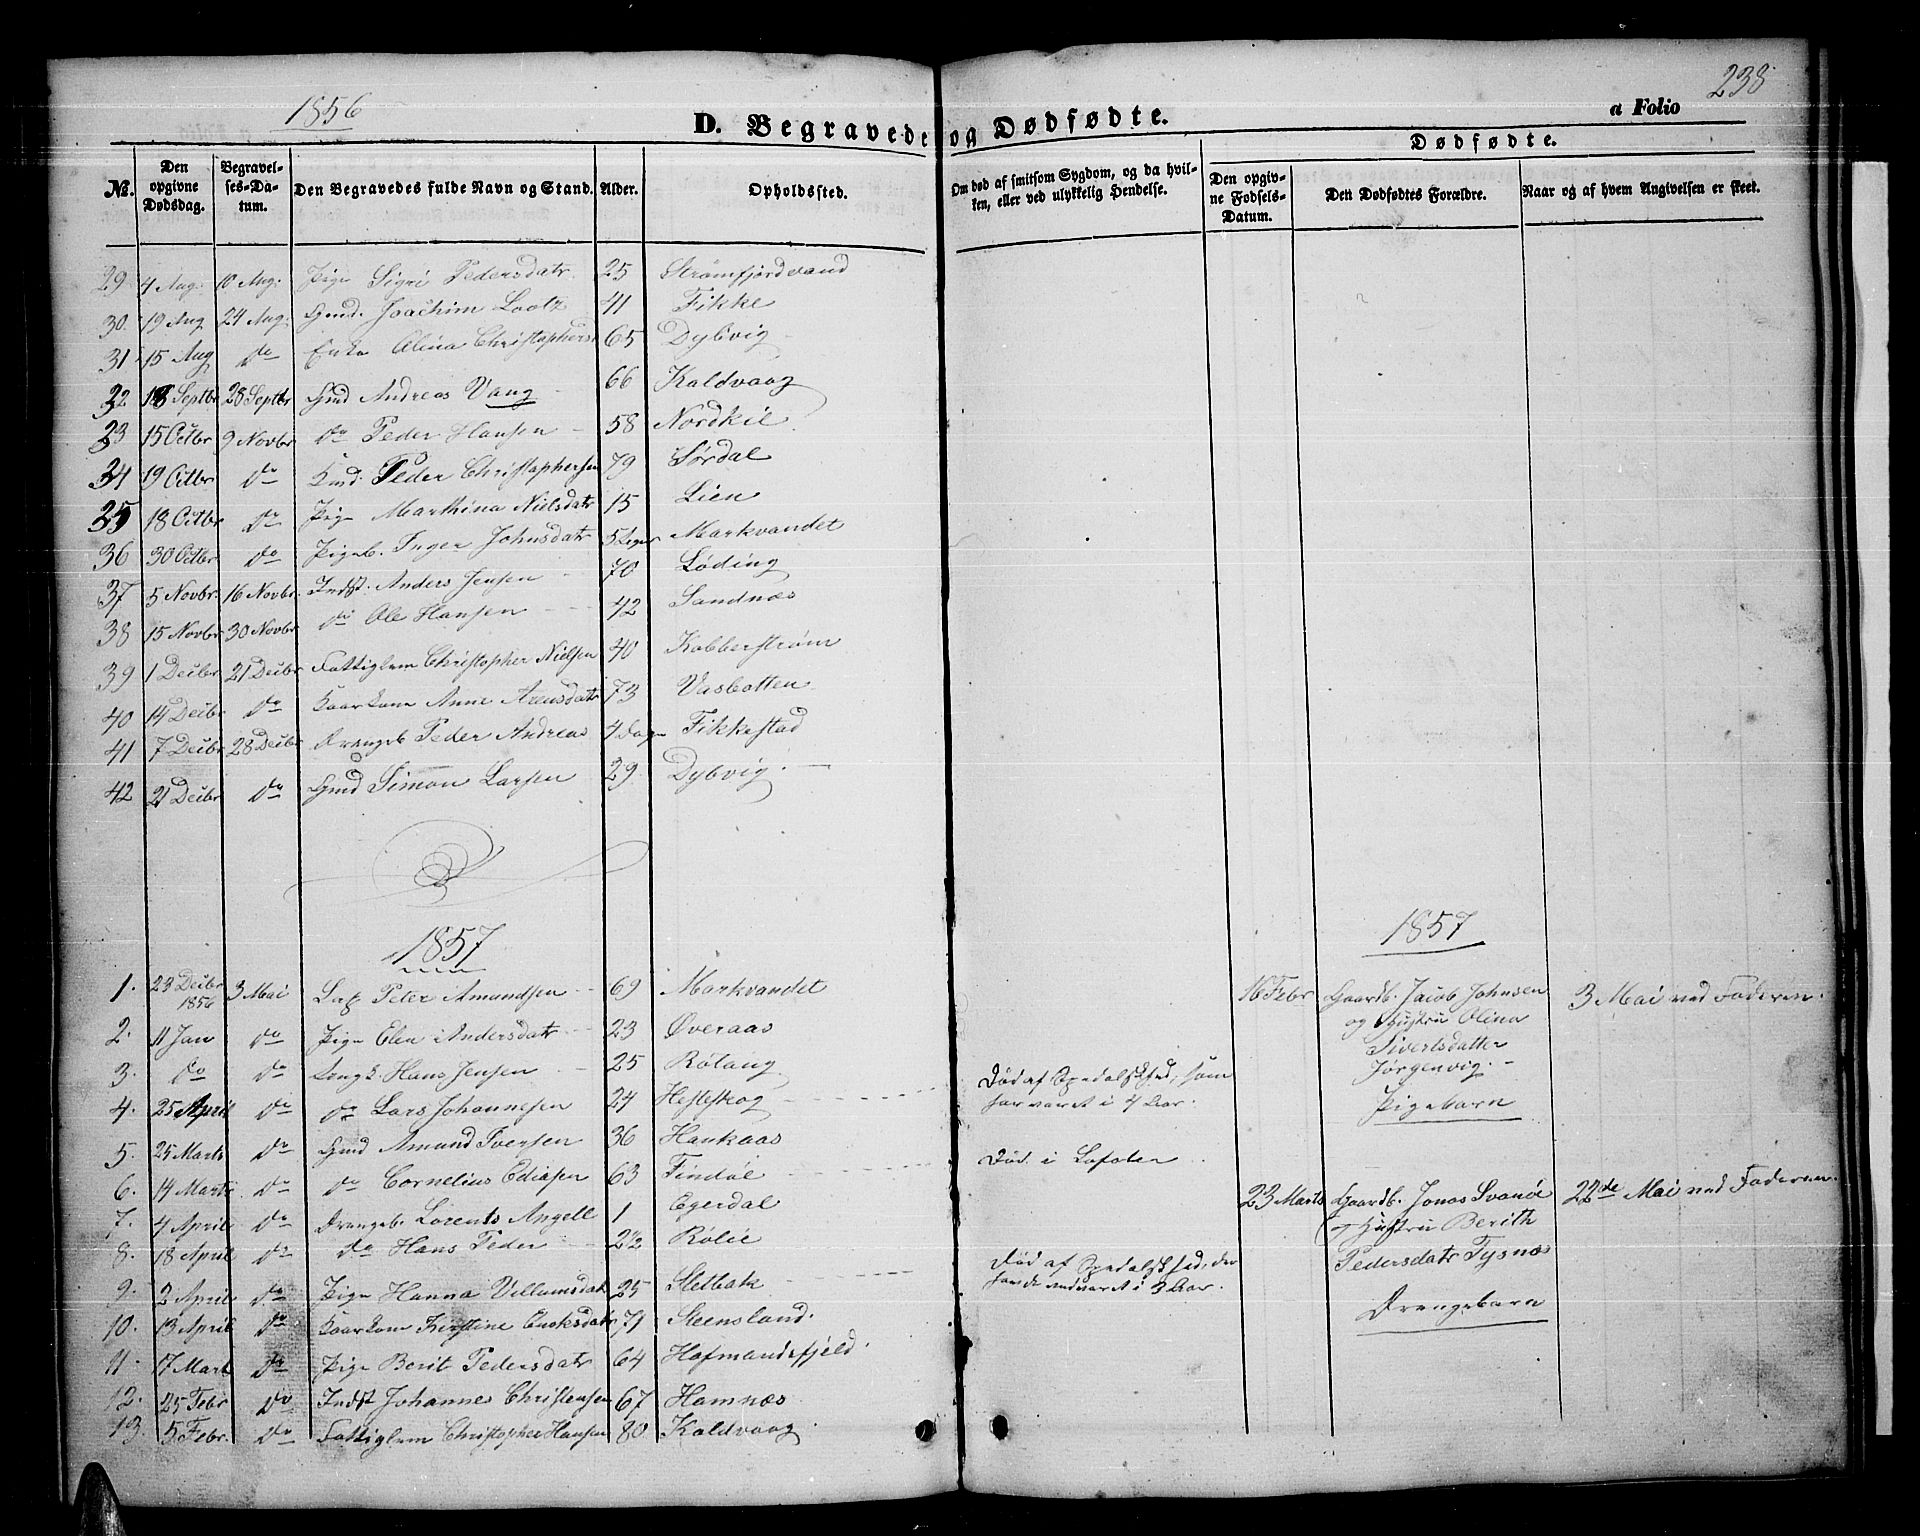 1856
D. Begravede og Dødfødte.
a Folio 238
No. | Den opgivne Dødsdag. | Begravelses-Datum. | Den Begravedes fulde Navn og Stand. | Alder. | Opholdssted. | Om død af smitsom Sygdom, og da hvilken, eller ved ulykkelig Hendelse. | Dødfødte. Den opgivne Fødsels-Datum. | Den Dødfødtes Forældre. | Naar og af hvem Angivelsen er skeet.
29 4 Aug. 10 Aug. Pige Sigri Pedersdatr 25 Strømfjordvand
30. 19 Aug 24 Aug. Gmd. Joachim Lootz 41 Fikke
31 15 Aug do Enke Olina Christophers 65 Dybvig
32 18 Septbr 28 Septbr Gmd Andreas Vang 66 Kaldvaag
33 15 Octbr 9 Novbr do Peder Hansen 58 Nordkil
34 19 Octbr do Kmd. Peder Christophersen 79 Sørdal
35 18 Octbr do Pige Marthina Nielsdatr 15 Lien
36 30 Octbr do Pigeb. Inger Johnsdatr 5 Uger Markvandet
37 5 Novbr. 16 Novbr. Indst. Anders Jensen 70 Løding
38 15 Novbr 30 Novbr do Ole Hansen 42 Sandnæs
39 1 Decbr 21 Decbr Fattiglem Christopher Nielsen 40 Kobberstrøm
40 14 Decbr do Kaarkone Anne Arensdatr 73 Vasbotten
41 7 Decbr 28 Decbr Drengeb Peder Andreas 4 Dage Fikkestad
42 21 Decbr do Gmd Simon Larsen 29 Dybvig.
1857
1857
1. 23 Decbr 1856 3 Mai Peter Amundsen 69 Markvandet 16 Febr Gaardb. Jacob Johnsen 3 Mai ved Faderen.
og Hustru Olina
2. 11 Jan do Pige Elen Andersdatr 23 Øveraas
Sivertsdatter
3. do do Ungk. Hans Jensen 25 Rølang
Jørgenvig.
4. 25 April do do Lars Johannesen 24 Hesteskog Død af Spedalskhed, som
har varet i 4 Aar.
Pigebarn
5. 25 Marts do Gmd Amund Iversen 36 Haukaas
6. 14 Marts do do Cornelius Ediasen 63 Findøl Død i Lofoten
7. 4 April do Drengeb. Lorents Angell 1 Egerdal
23 Marts Gaardb. Jonas Svanøe 22de Mai ved Faderen.
og Hustru Berith
8. 18 April do do Hans Peder 2½ Rølie
Pedersdatr Tysnæs
9. 2 April do Pige Hanna Villumsdatr 25 Sletbak Død af Spedalskhed, der
havde vedvaret i 3 Aar.
Drengebarn
10. 13 April do Kaarkone Kirstine 79 Steensland.
11. 17 Mart do Pige Berit Pedersdatr 64 Hafmandsfjeld.
12. 25 Febr do Indst Johannes Christensen 67 Hamnæs
13. 5 Febr. do Fattiglem Christopher Hansen 80 Kaldvaag.